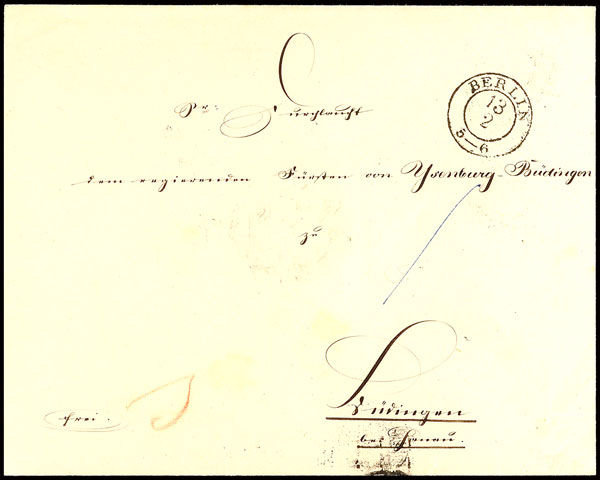 BERLIN
13
2
5—6
Sr. Durchlaucht
dem regierenden Fürsten von Ysenburg-Büdingen
zu
Büdingen
bei Hanau.
frei.